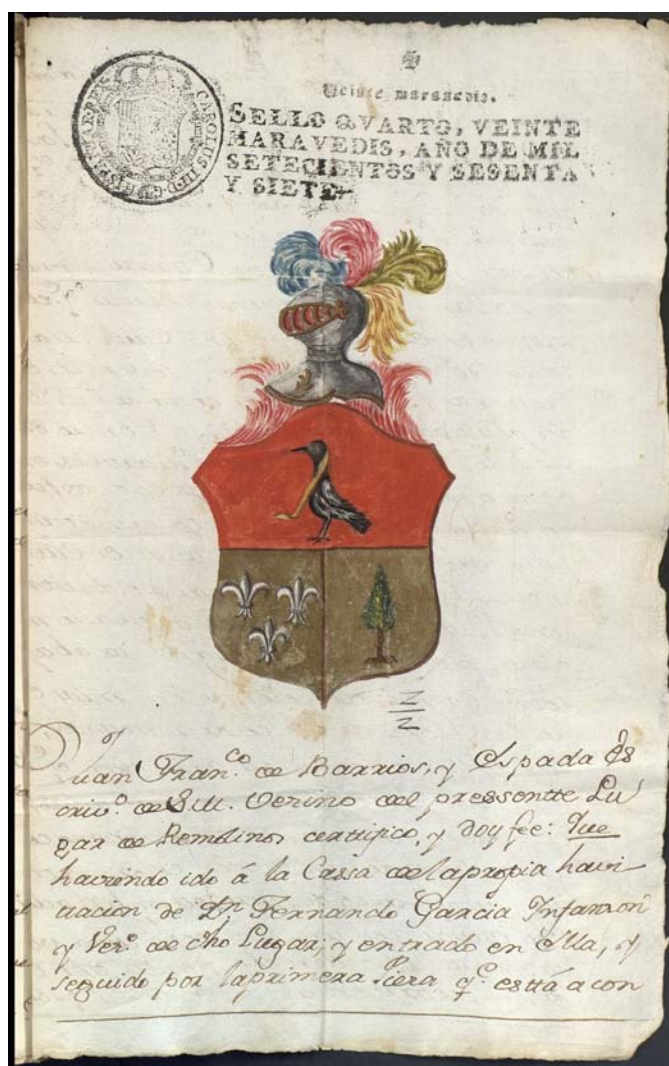 CAROLUS III D G HISPANIAR REX
Veinte maravedis.
SELLO QVARTO, VEINTE
MARAVEDIS, AÑO DE MIL
SETECIENTOS Y SESENTA
Y SIETE
Juan Fran.co de Barrios, y Espada Es
criv.o de S.M. Vezino del pressentte Lu
gar de Remolinos certifico, y doy fee: Que
haviendo ido á la Cassa de la propia havi
tacion de Dn Fernando Garcia Infanzon
y Vez.o de dho Lugar, y entrado en Ella, y
seguido por la primera Piera q.e está a con